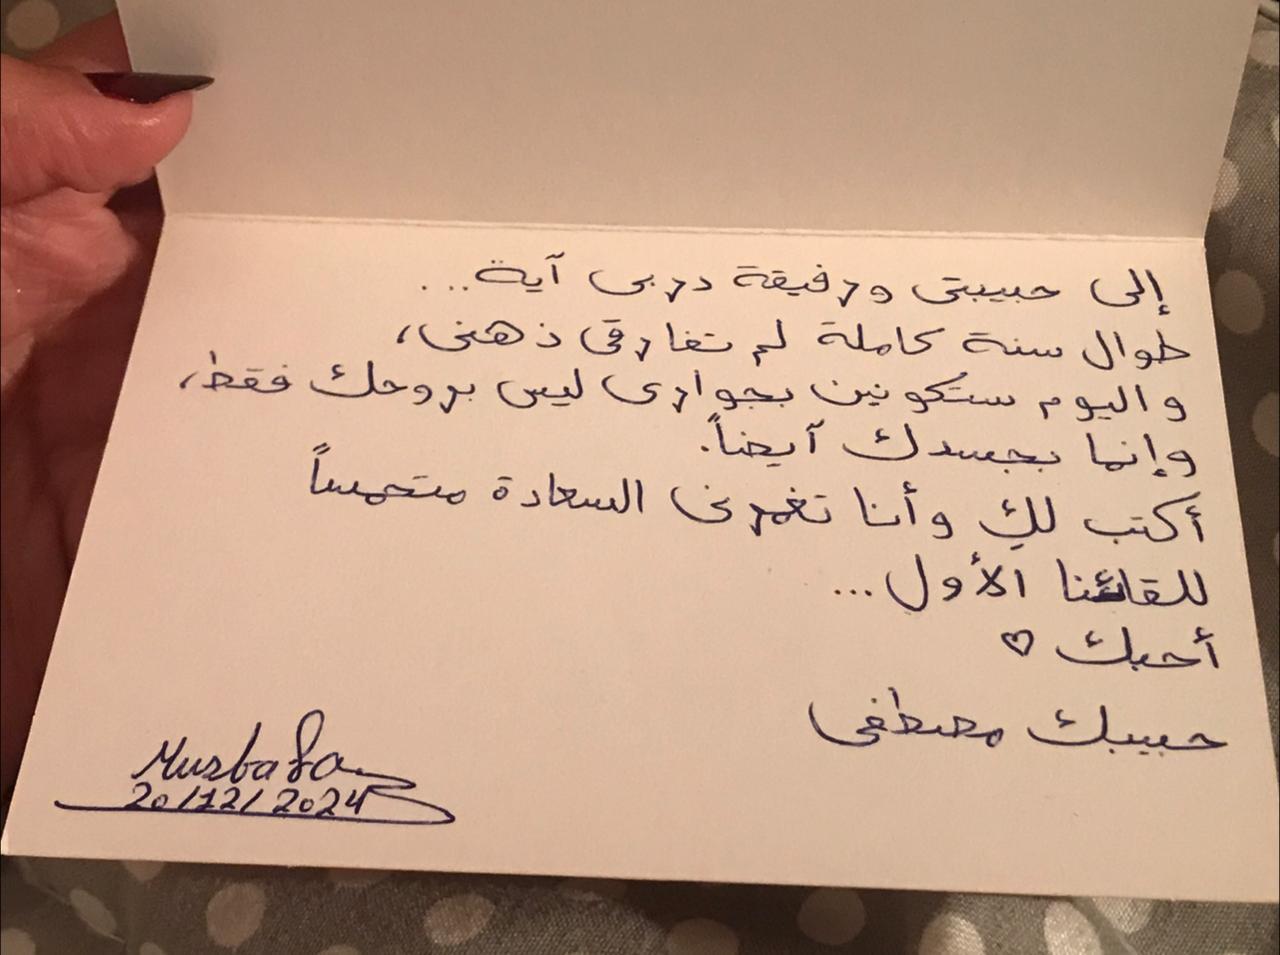 إلى حبيبتى ورفيقة دربى آية...
طوال سنة كاملة لم تفارقى ذهنى،
واليوم ستكونين بجوارى ليس بروحك فقط،
وإنما بجسدك آيضاً.
أكتب لكِ وأنا تغمرنى السعادة متحمساً
للقائنا الأول...
أحبك ♡
حبيبك مصطفى
Mustafa
20/12/2024